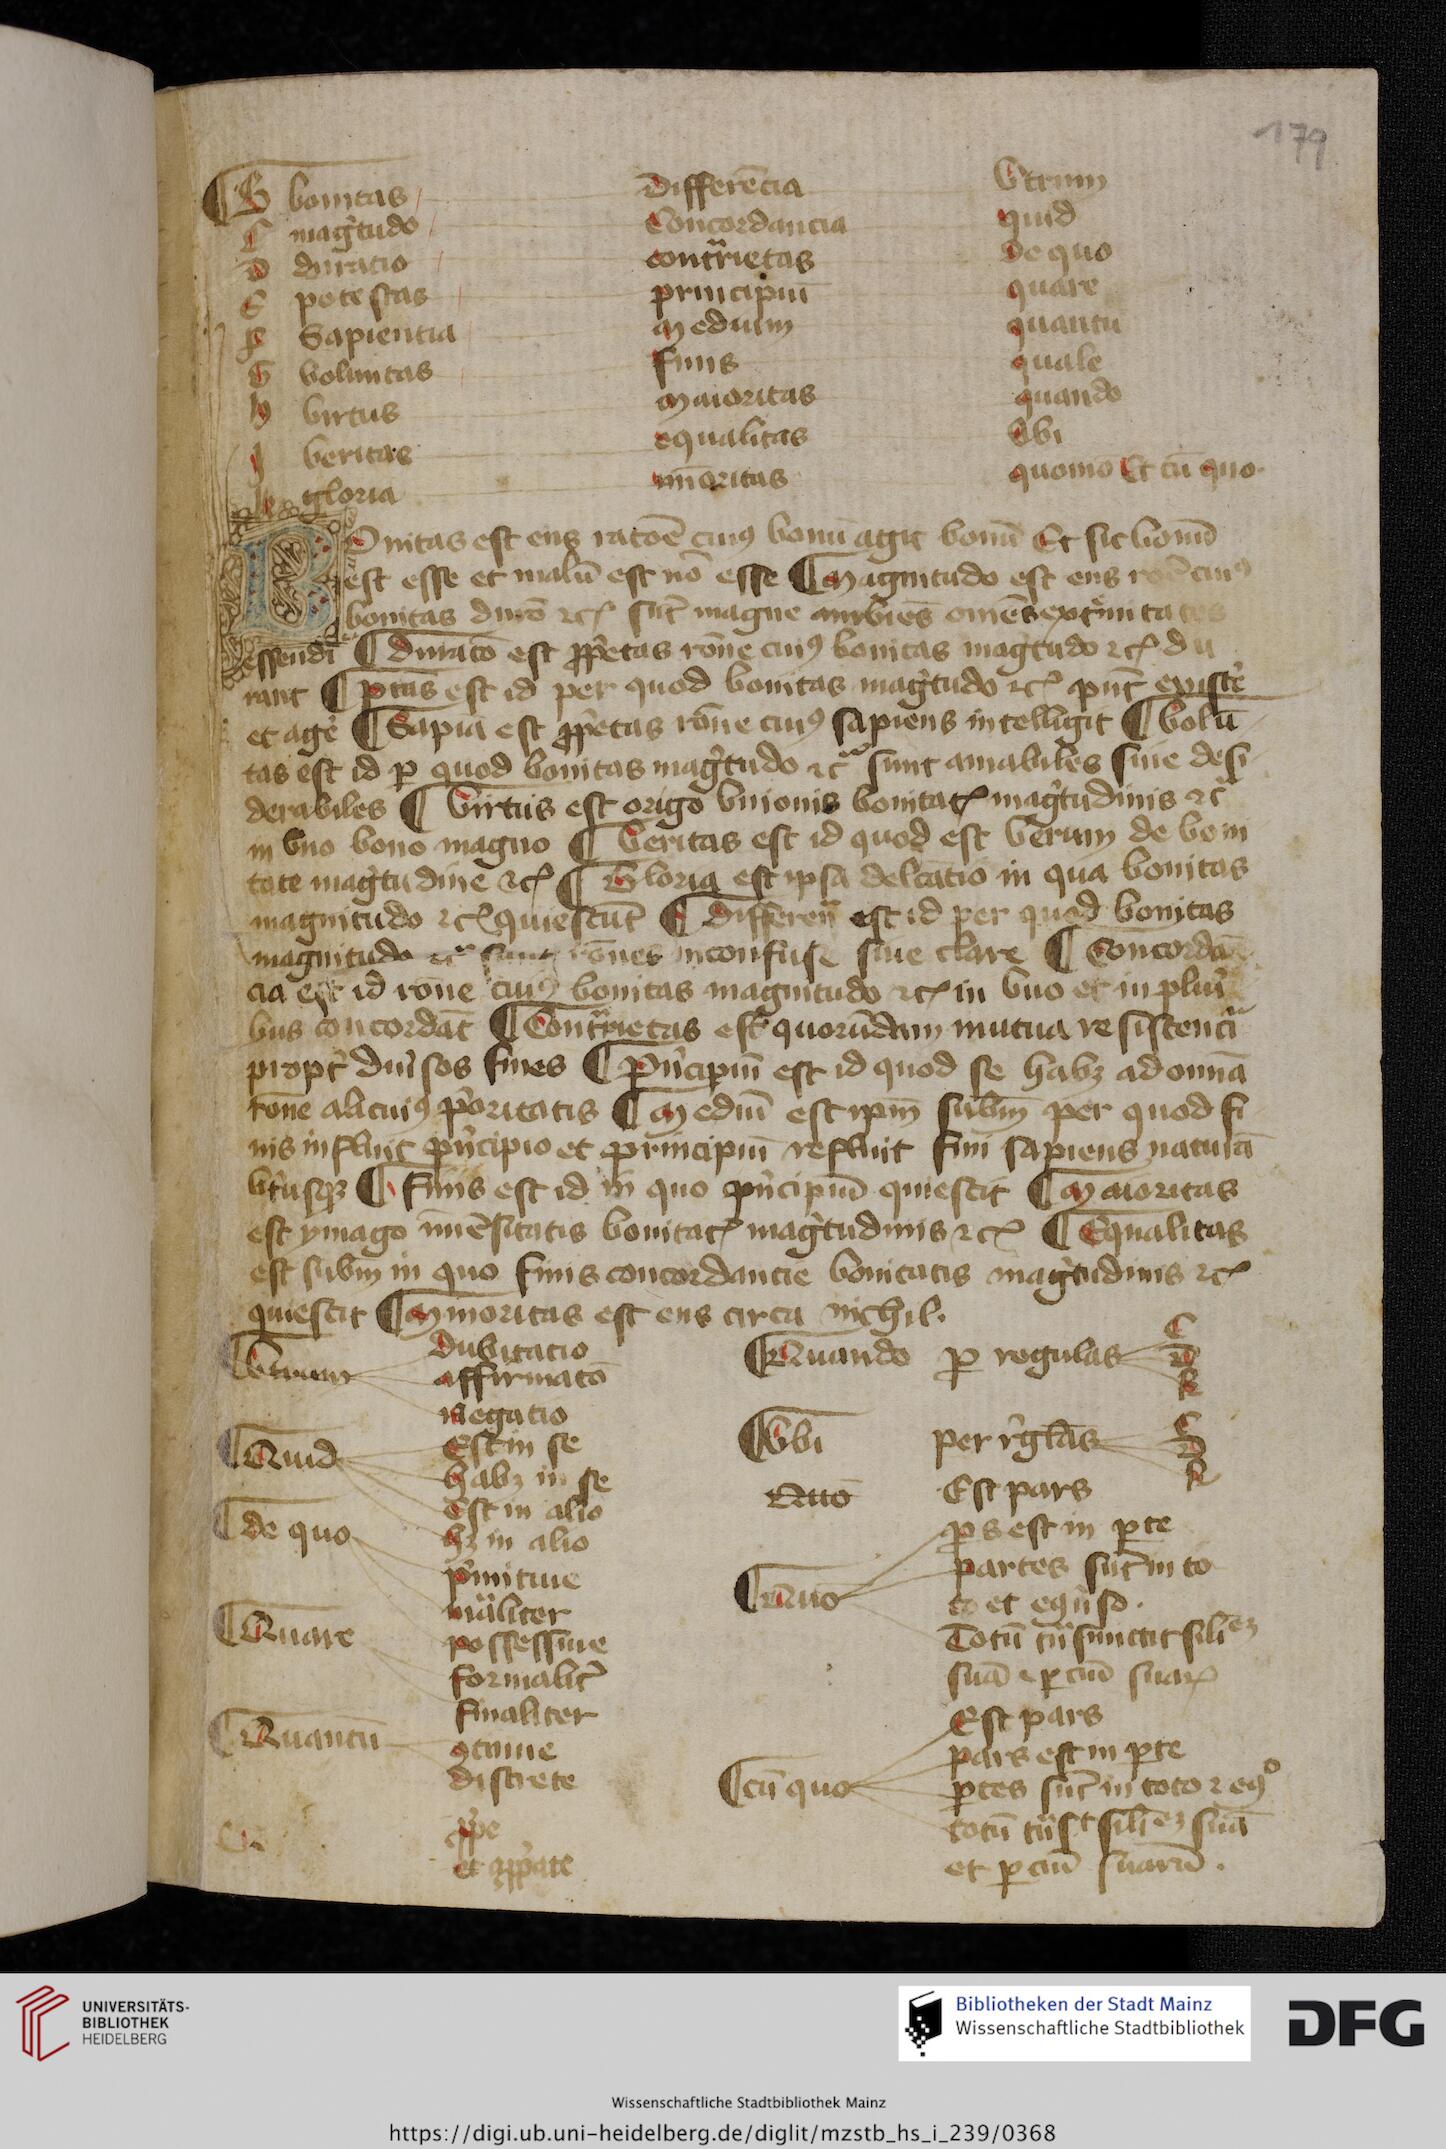 179
B bonitas differēcia Vtrum
C mag̾tudo Concordancia quid
D duratio contᵃrietas de quo
E potestas principiū quare
F Sapientia Medium quantū
G voluntas finis quale
H virtus Maioritas quando
I veritas equalitas Vbi
K gloria minoritas quomō Et cū quo
Bonitas est ens ratōe cuiꝰ bonū agit bonū Et sic bonū
est esse et malū est nō esse ¶ Magnitudo est ens rōe cuiꝰ
bonitas duro ⁊cͣ sūt magne ambiēs omēs ext̾mitates
essendi ¶ duratō est ꝓp̾etas rōne cuiꝰ bonitas mag̾tudo ⁊cͣ du
rant ¶ ptās est id per quod bonitas mag̾tudo ⁊cͣ pn̄t existe̾
et age̾ ¶ Sapīa est ꝓp̾etas rōne cuiꝰ sapiens intelligit ¶ volū
tas est id ꝑ quod bonitas mag̾tudo ⁊cͣ sunt amabiles siue desi
derabiles ¶ Virtus est origo vnionis bonitatꝭ mag̾tudinis ⁊cͣ
in vno bono magno ¶ Veritas est id quod est verum de boni
tate mag̾tudine ⁊cͣ ¶ Gloria est ipsa delcatio in qua bonitas
magnitudo ⁊cͣ quiescūt ¶ differenᵃ est id per quod bonitas
magnitudo ⁊cͣ sunt rōnes inconfuse siue clare ¶ Concordā
cia est id rōne cuiꝰ bonitas magnitudo ⁊cͣ in vno et in pluri
bus concordāt ¶ Contᵃrietas est quorūdam mutua resistenciᵃ
propt̾ diu̾sos fines ¶ Pn̾cipiū est id quod se habꝫ ad omnā
rōne alicuiꝰ p̾oritatis ¶ Mediū est ipm̄ subm̄ per quod fi
nis influit pn̾cipio et principiū refluit fini sapiens naturā
vt̾usqꝫ ¶ Finis est id in quo pn̾cipiū quiescit ¶ Maioritas
est ymago imēsitatis bonitatꝭ mag̾tudinis ⁊cͣ ¶ Equalitas
est subm in quo finis concordantie bonitatis mag̾tudinis ⁊cͣ
quiescit ¶ Minoritas est ens circa nichil.
¶ Vtrum
dubitacio
affirmatō
negatio
¶ Quid
Est in se
habꝫ in se
Est in alio
hꝫ in alio
¶ de quo
p̾mitiue
mᵃliter
possessiue
¶ Quare
formalit̾
finaliter
¶ Quantū
ꝯtinue
discrete
ꝓp̾e
et appᵃte
¶ Quando ꝑ regulas C D K
¶ Vbi per r̾glas C D K
Quō Est pars
¶ Quō
ꝑs est in ꝑte
partes sūt in to
to et eq̾uso.
Totū
suā ⁊ ꝑciū suaꝝ
¶ cū quo
Est pars
pars est in ꝑte
ꝑtes sūt in toto ⁊ eqͦ
totū
et ꝑciū suarū.
UNIVERSITÄTS-
BIBLIOTHEK
HEIDELBERG
Bibliotheken der Stadt Mainz
Wissenschaftliche Stadtbibliothek
DFG
Wissenschaftliche Stadtbibliothek Mainz
https://digi.ub.uni-heidelberg.de/diglit/mzstb_hs_i_239/0368